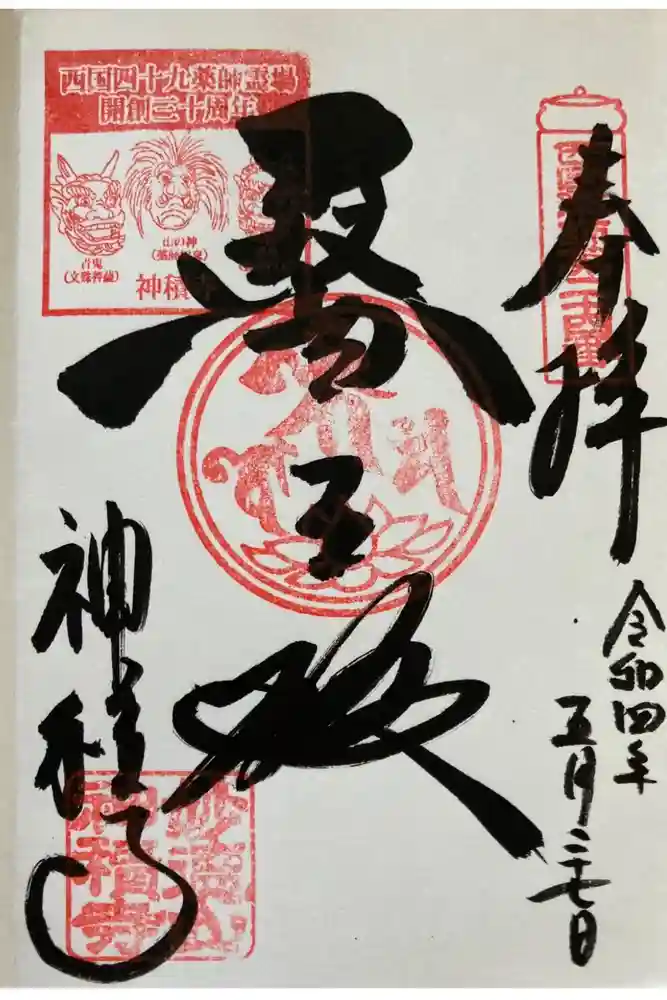 奉拝
令和四年
五月二十七日
醫王殿
神積寺
西国四十九薬師霊場
開創三十周年
山の神
(薬師如来)
青鬼
(文殊菩薩)
神積寺
神積寺